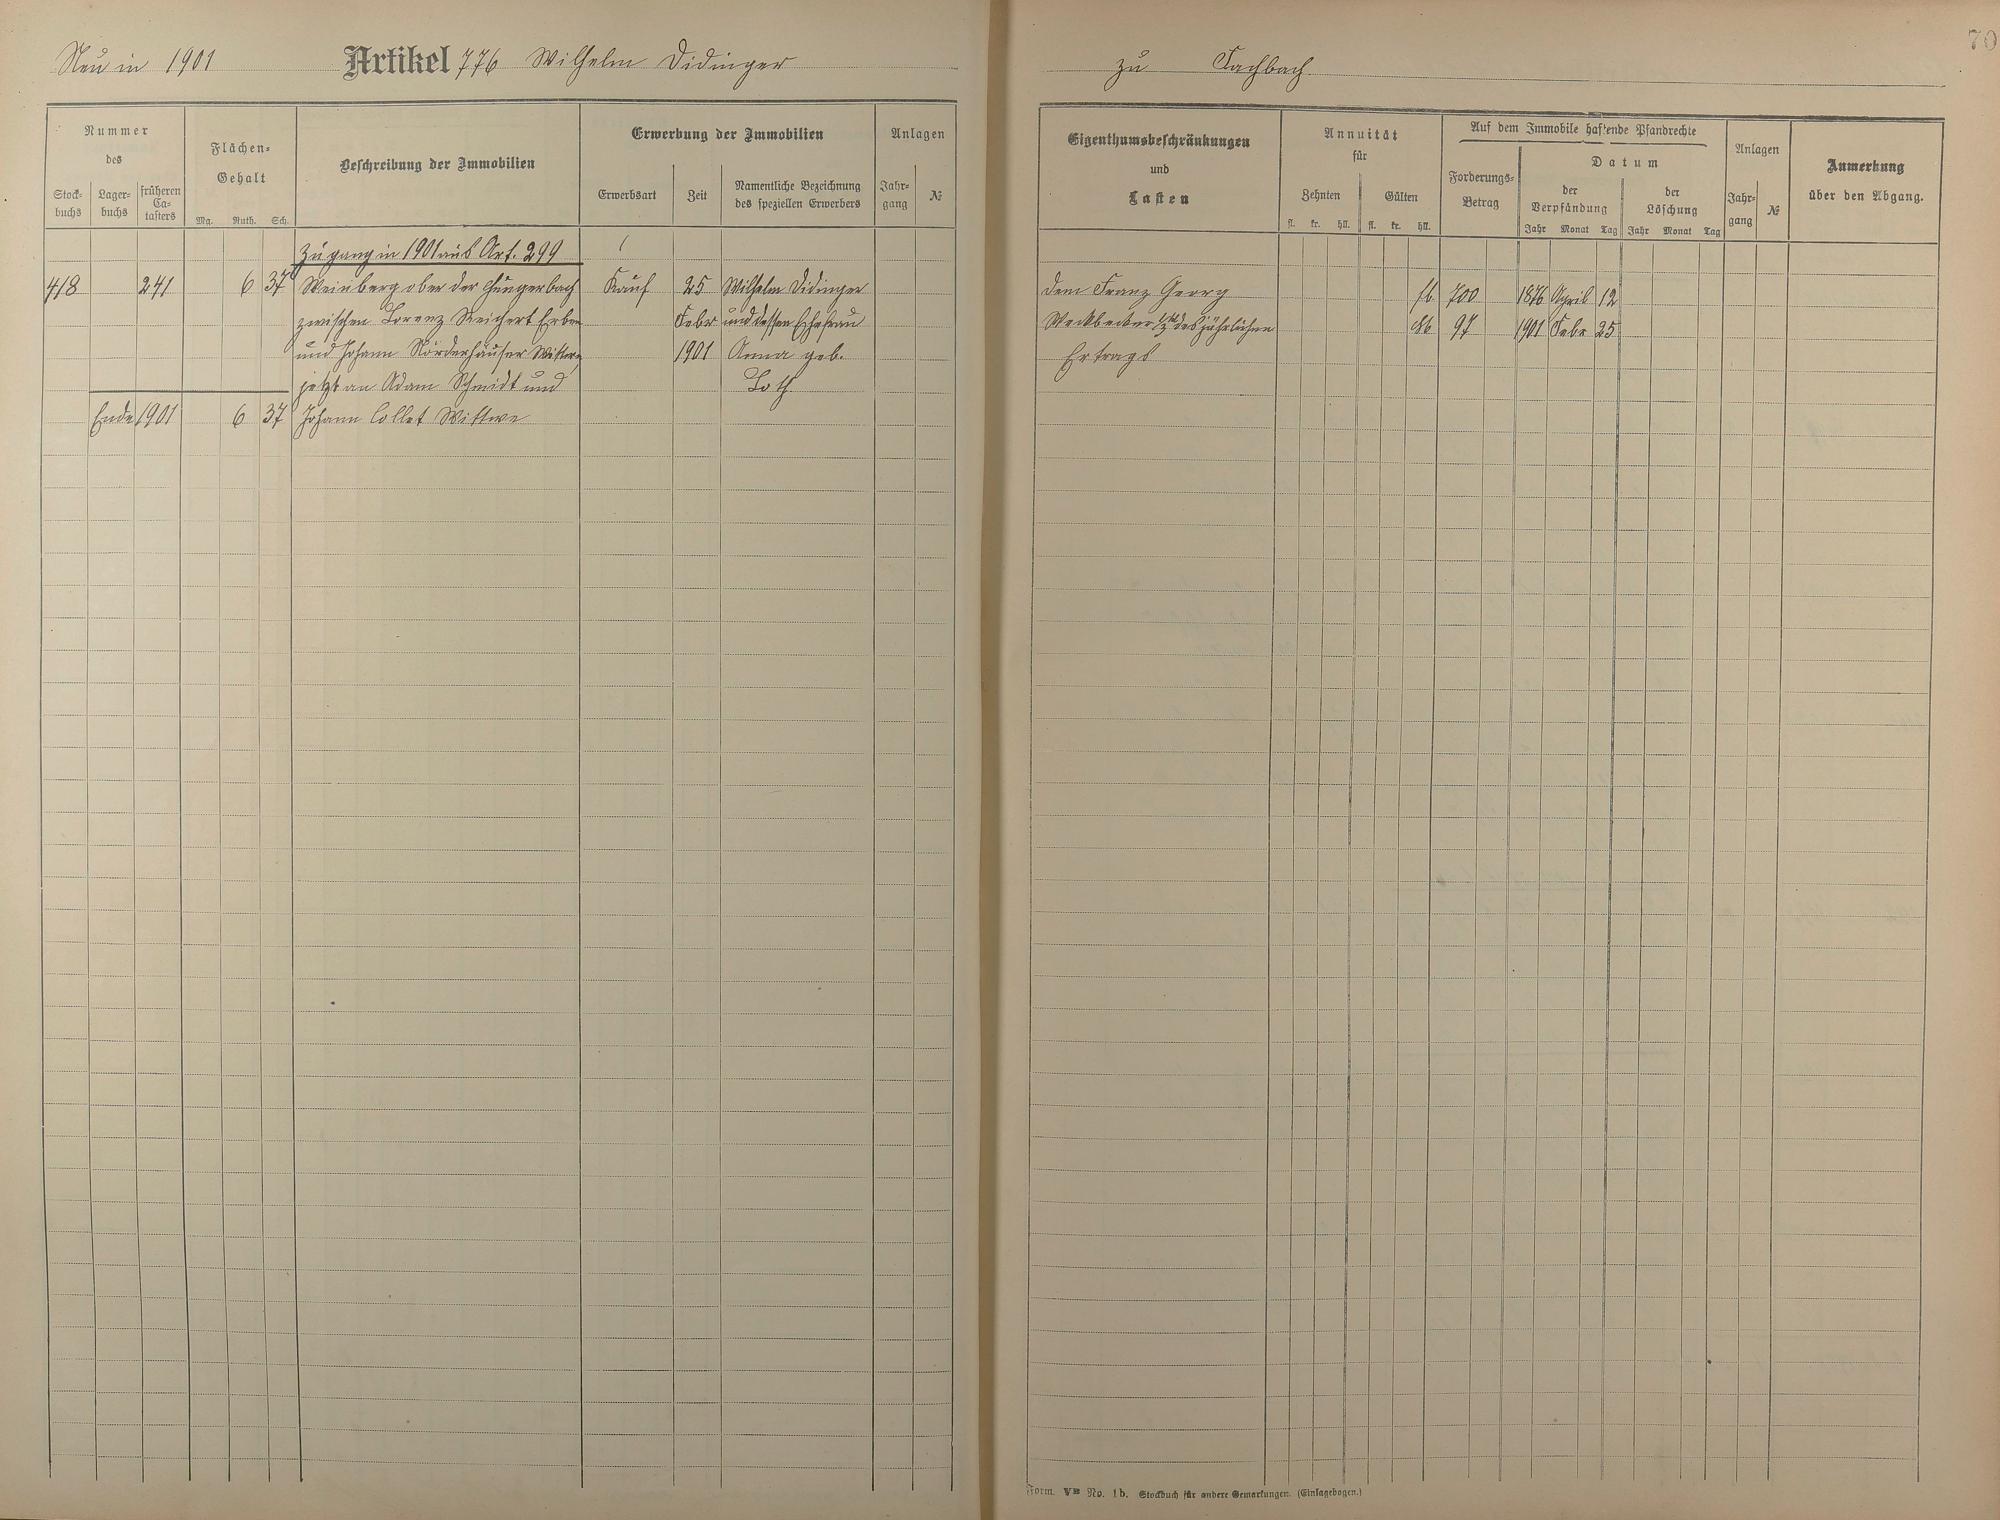 70
Neu in 1901 Artikel 776 Wilhelm Didinger
zu Fachbach.
Nummer
des
Stock-
buchs
Lager-
buchs
früheren
Ca-
tasters
Flächen-
Gehalt
Mg. Ruth. Sch.
Beschreibung der Immobilien
Erwerbung der Immobilien
Erwerbsart
Zeit
Namentliche Bezeichnung
des speziellen Erwerbers
Anlagen
Jahr-
gang
№
Eigenthumsbeschränkungen
und
Lasten
Annuität
für
Zehnten
Gülten
fl. kr. hll. fl. kr. hll.
Auf dem Immobile haftende Pfandrechte
Forderungs-
Betrag
Datum
der
Verpfändung
der
Löschung
Jahr Monat Tag Jahr Monat Tag
Anlagen
Jahr-
gang
№
Anmerkung
über den Abgang.
Zugang in 1901 aus Art. 299
418 241 6 37 Weinberg ober der Hungerbach Kauf 25 Wilhelm Didinger
zwischen Lorenz Reichert Erben Febr und dessen Ehefrau
und Johann Nörderhäuser Wittwe, 1901 Anna geb.
jetzt an Adam Schmidt und Loth
Ende 1901 6 37 Johann Collet Wittwe
dem Franz Georg fl. 700 1876 April 12
Weckbecker des jährlichen 97 1901 Febr 25
Ertrags
Form. No. 1b. Stockbuch für andere Gemarkungen. (Einlagebogen.)